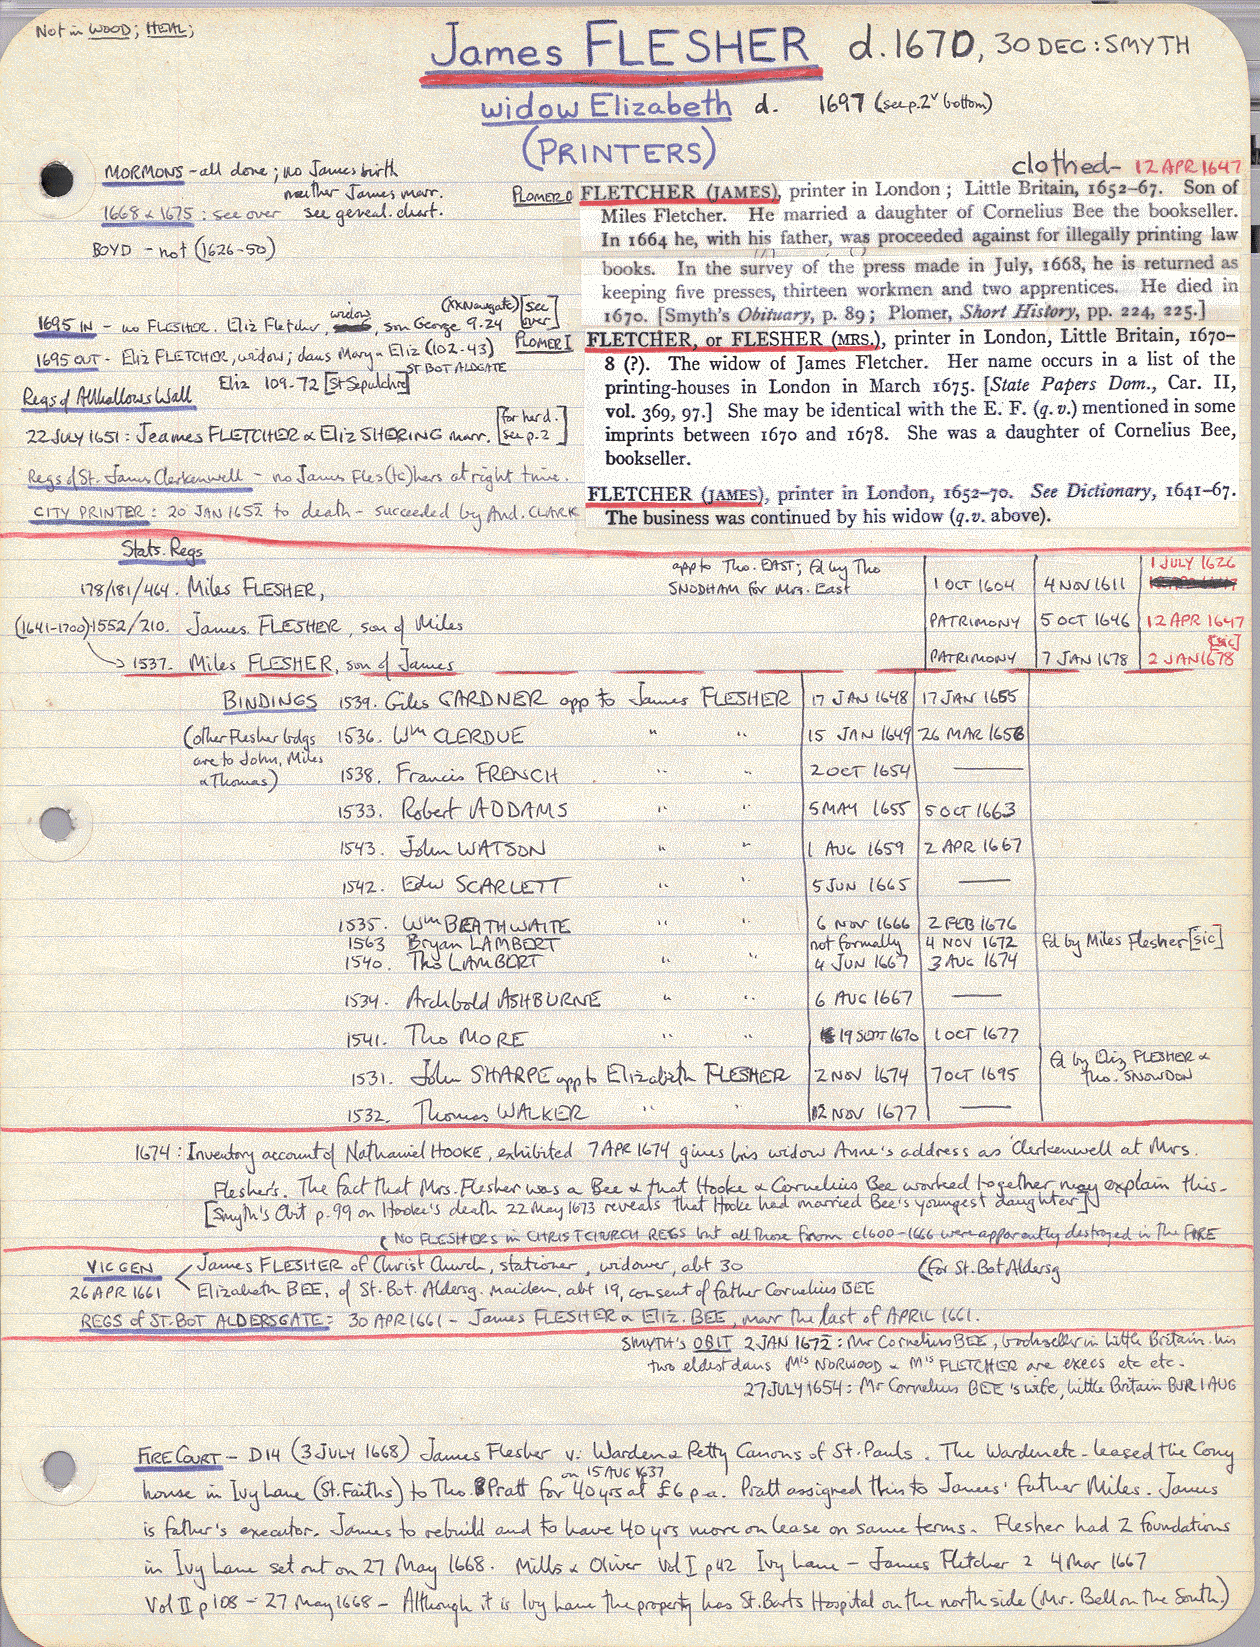 Not in WOOD; HEAL;
James FLESHER d. 1670, 30 DEC: SMYTH
widow Elizabeth d. 1697 (see p.2v bottom)
(PRINTERS)
clothed- 12 APR 1647
MORMONS - all done; no James birth
neither James marr.
1668 & 1675: see over see geneal. chart.
BOYD - not (1626-50)
PLOMER O FLETCHER (JAMES), printer in London; Little Britain, 1652-67. Son of
Miles Fletcher. He married a daughter of Cornelius Bee the bookseller.
In 1664 he, with his father, was proceeded against for illegally printing law
books. In the survey of the press made in July, 1668, he is returned as
keeping five presses, thirteen workmen and two apprentices. He died in
1670. [Smyth's Obituary, p. 89; Plomer, Short History, pp. 224, 225.]
(XXNewgate) [see over]
1695 IN - no FLESHER. Eliz Fletcher, widow, son George 9.24
1695 OUT - Eliz FLETCHER, widow; daus Mary & Eliz (102-43)
ST BOT ALDGATE
Eliz 109-72 [St Sepulchre]
PLOMER I FLETCHER, or FLESHER (MRS.), printer in London, Little Britain, 1670-
8 (?). The widow of James Fletcher. Her name occurs in a list of the
printing-houses in London in March 1675. [State Papers Dom., Car. II,
vol. 369, 97.] She may be identical with the E. F. (q.v.) mentioned in some
imprints between 1670 and 1678. She was a daughter of Cornelius Bee,
bookseller.
Regs of Allhallows Wall
22 JULY 1651: Jeames FLETCHER & Eliz SHERING marr. [for her d. see p.2]
Regs of St. James Clerkenwell - no James Fles(tc)hers at right time.
CITY PRINTER: 20 JAN 1652 to death - succeeded by And. CLARK
FLETCHER (JAMES), printer in London, 1652-70. See Dictionary, 1641-67.
The business was continued by his widow (q.v. above).
Stats. Regs
178/181/464. Miles FLESHER, app to Tho. EAST; fd by Tho SNODHAM for Mrs. East 1 OCT 1604 4 NOV 1611 1 JULY 1626
(1641-1700) 1552/210. James FLESHER, son of Miles PATRIMONY 5 OCT 1646 12 APR 1647
1537. Miles FLESHER, son of James PATRIMONY 7 JAN 1678 2 JAN 1678 [sic]
BINDINGS 1539. Giles GARDNER app to James FLESHER 17 JAN 1648 17 JAN 1655
(other Flesher bdgs are to John, Miles & Thomas)
1536. Wm CLERDUE " " 15 JAN 1649 26 MAR 1656
1538. Francis FRENCH " " 2 OCT 1654 ——
1533. Robert ADDAMS " " 5 MAY 1655 5 OCT 1663
1543. John WATSON " " 1 AUG 1659 2 APR 1667
1542. Edw SCARLETT " " 5 JUN 1665 ——
1535. Wm BEATHWAITE " " 6 NOV 1666 2 FEB 1676
1563 Bryan LAMBERT not formally 4 NOV 1672 fd by Miles Flesher [sic]
1540. Tho LAMBERT " " 4 JUN 1667 3 AUG 1674
1534. Archbold ASHBURNE " " 6 AUG 1667 ——
1541. Tho MORE " " 19 SEPT 1670 1 OCT 1677
1531. John SHARPE app to Elizabeth FLESHER 2 NOV 1674 7 OCT 1695 fd by Eliz FLESHER & Tho. SNOWDON
1532. Thomas WALKER " " 12 NOV 1677 ——
1674: Inventory account of Nathaniel HOOKE, exhibited 7 APR 1674 gives his widow Anne's address as 'Clerkenwell at Mrs.
Flesher's. The fact that Mrs. Flesher was a Bee & that Hooke & Cornelius Bee worked together may explain this.
[Smyth's Obit p.99 on Hooke's death 22 May 1673 reveals that Hooke had married Bee's youngest daughter]
(NO FLESHERS in CHRISTCHURCH REGS but all those from c1600-1666 were apparently destroyed in the FIRE
VIC GEN James FLESHER of Christ Church, stationer, widower, abt 30 (for St. Bot Aldersg
26 APR 1661 Elizabeth BEE, of St. Bot. Aldersg. maiden, abt 19, consent of father Cornelius BEE
REGS of ST. BOT ALDERSGATE: 30 APR 1661 - James FLESHER & Eliz. BEE, marr the last of APRIL 1661.
SMYTH's OBIT 2 JAN 1672: Mr Cornelius BEE, bookseller in Little Britain. his
two eldest daus Mris NORWOOD & Mris FLETCHER are execs etc etc.
27 JULY 1654: Mr Cornelius BEE's wife, Little Britain BUR 1 AUG
FIRE COURT - D14 (3 JULY 1668) James Flesher v. Warden & Petty Canons of St. Pauls. The Warden etc leased the Cony
house in Ivy Lane (St. Faiths) to Tho. Pratt on 15 AUG 1637 for 40 yrs at £6 p.a. Pratt assigned this to James' father Miles. James
is father's executor. James to rebuild and to have 40 yrs more on lease on same terms. Flesher had 2 foundations
in Ivy Lane set out on 27 May 1668. Mills & Oliver Vol I p42 Ivy Lane - James Fletcher 2 4 Mar 1667
Vol II p108 - 27 May 1668 - Although it is Ivy Lane the property has St. Barts Hospital on the north side (Mr. Bell on the South.)